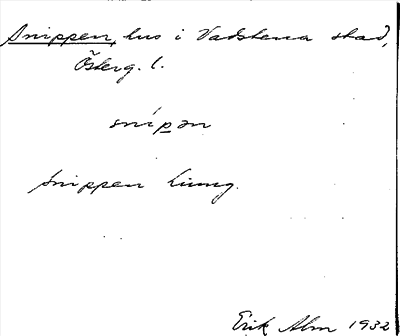 Snippen, hus i Vadstena stad,
Österg. l.
snípən
Snippen Ljung.
Erik Alm 1932